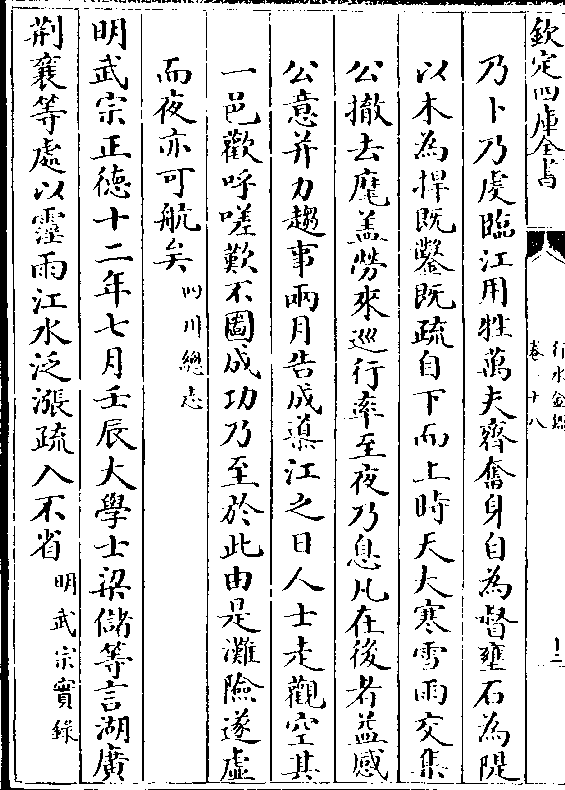 欽定四庫全書
行水金鑑
卷八十八
十二
乃卜乃虔臨江用牲萬夫齊奮身自為督壅石為隄
以木為捍既鑿既疏自下而上時天大寒雪雨交集
公撤去麾盖勞來巡行率至夜乃息凡在後者益感
公意并力趨事兩月告成導江之日人士走觀空其
一邑歡呼嗟歎不圖成功乃至於此由是灘險遂虛
而夜亦可航矣四川總志
明武宗正德十二年七月壬辰大學士梁儲等言湖廣
荆襄等處以霪雨江水泛漲疏入不省明武宗實錄